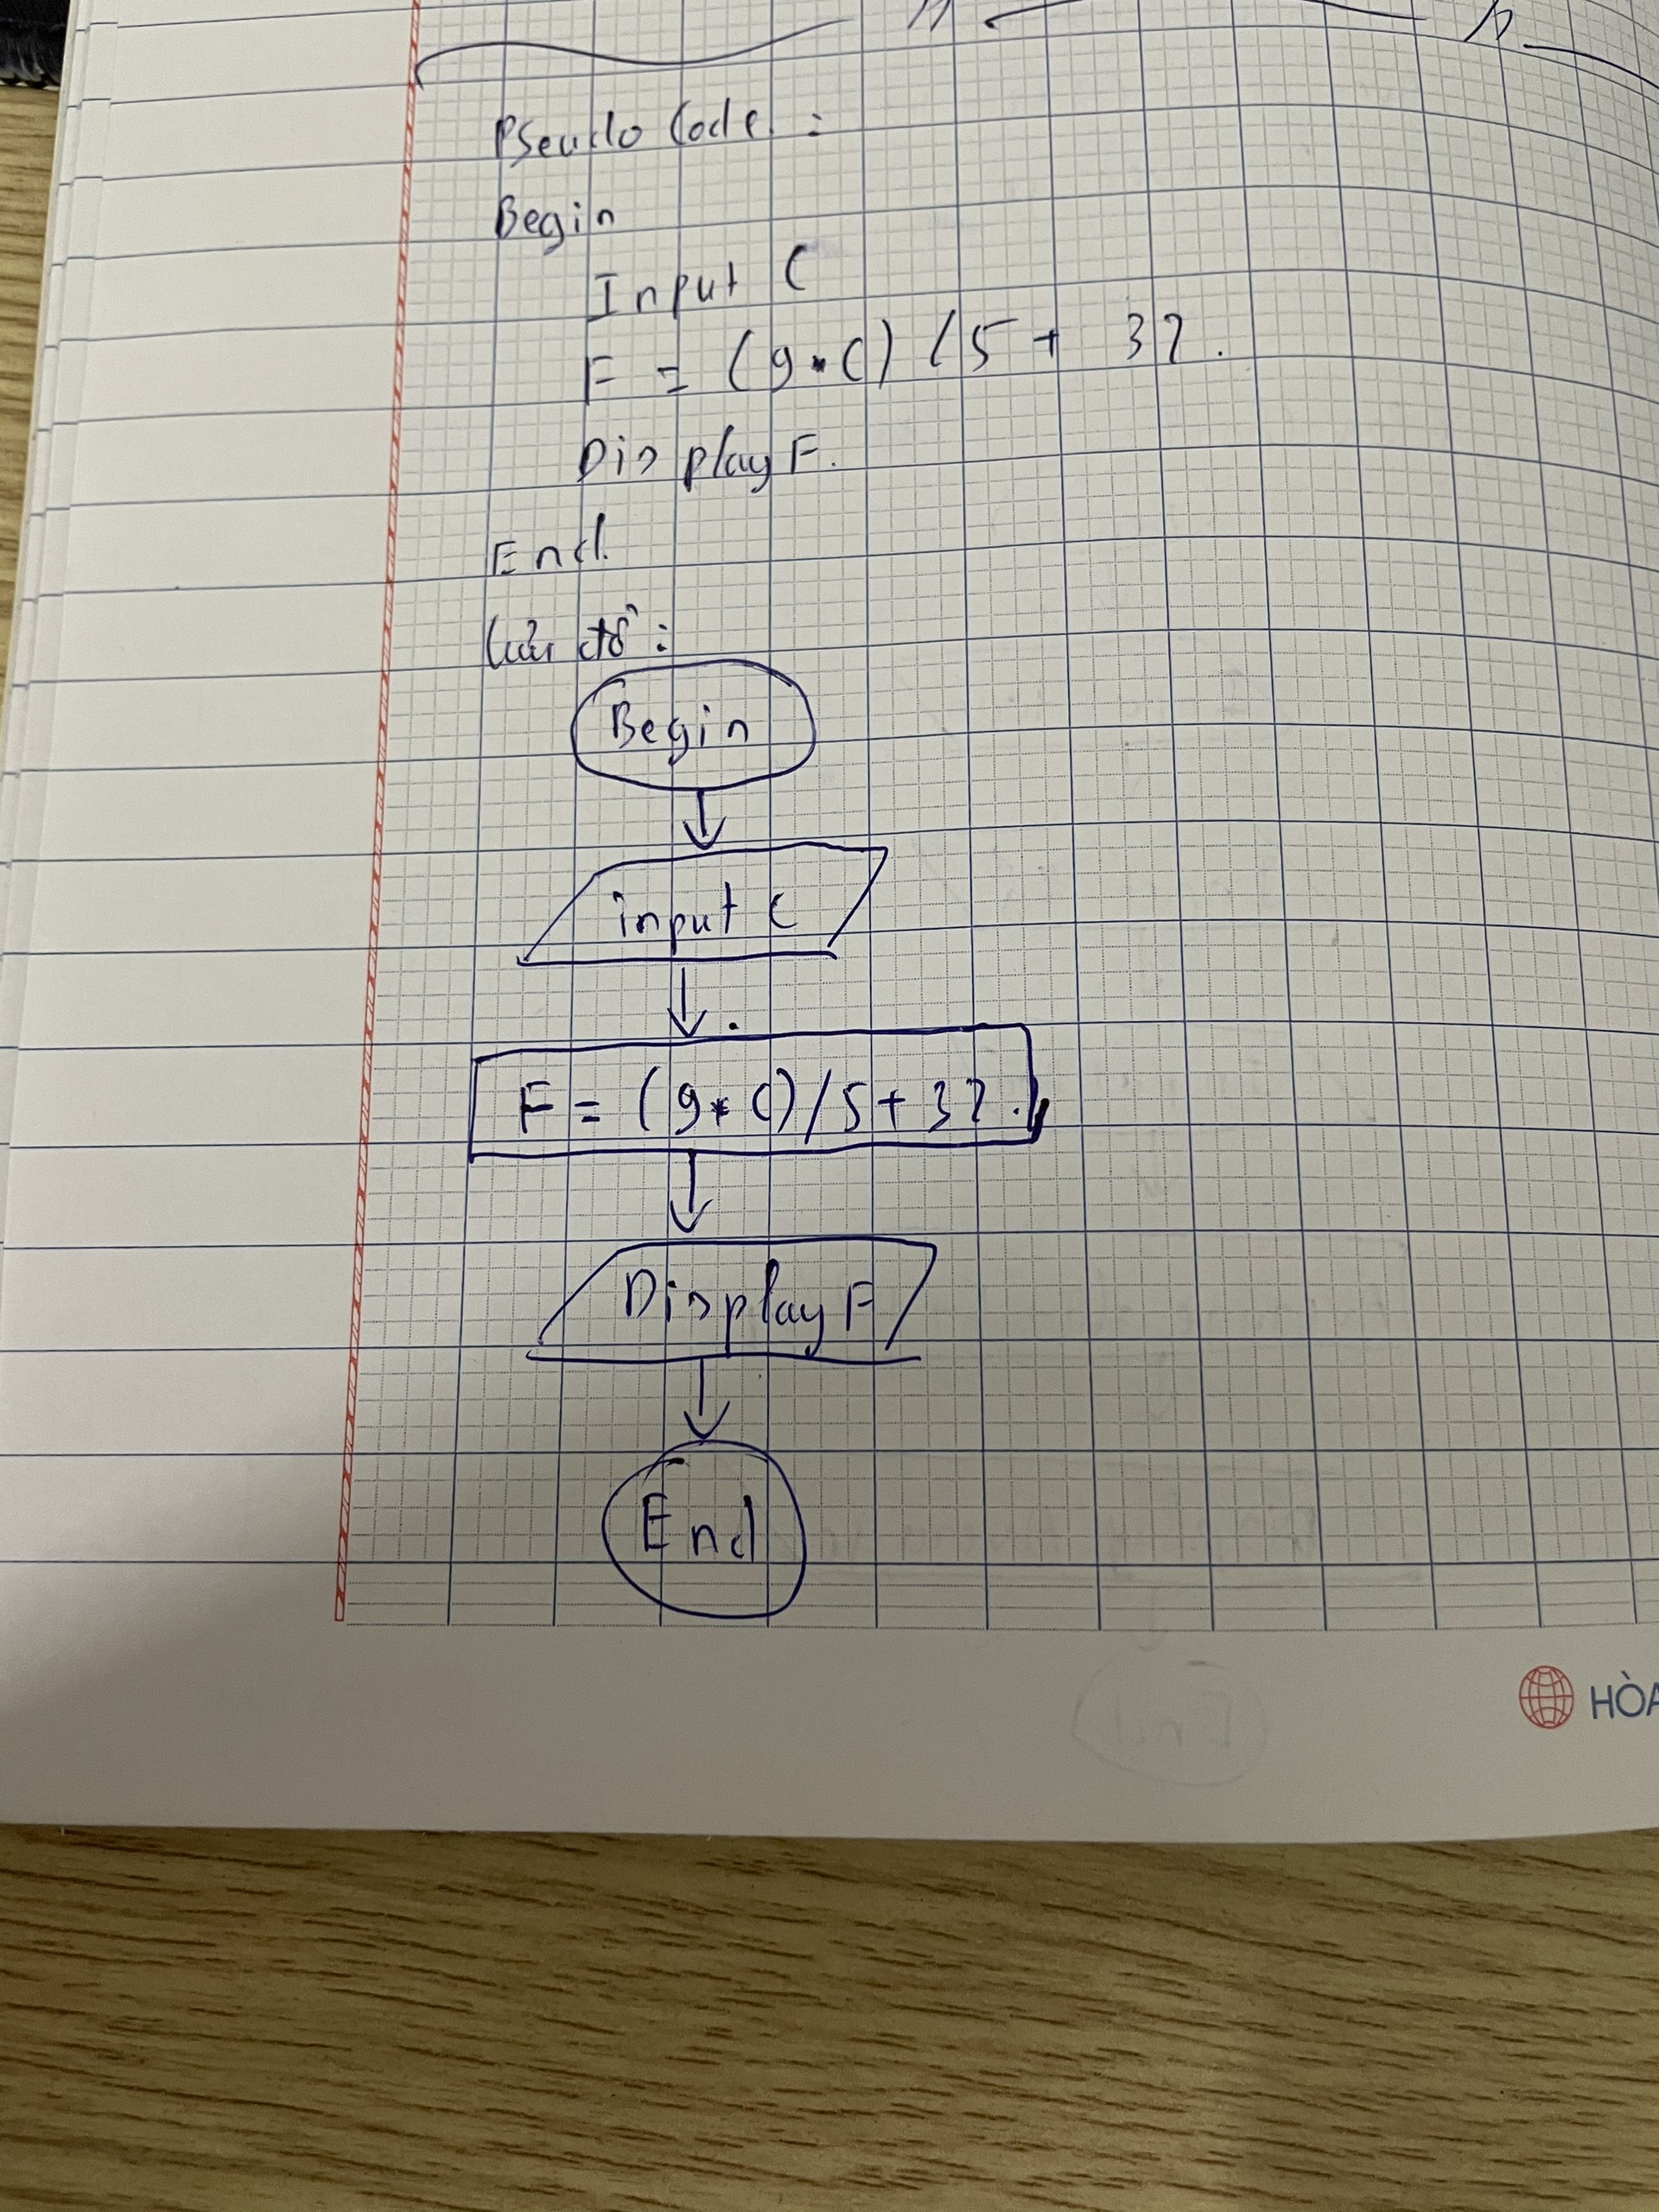 Pseudo Code :
Begin
Input C
F = (9*C) / 5 + 32.
Display F.
End.
Lưu đồ :
Begin
input C
F = (9*C)/5+32.
Display F
End
HÒA